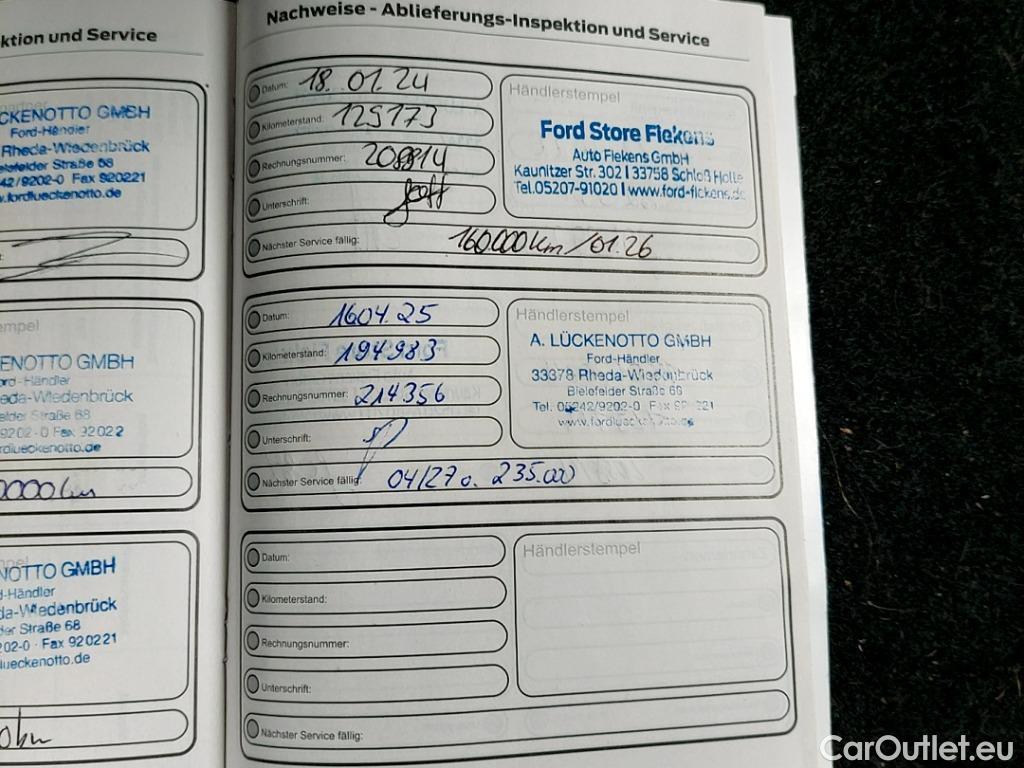 ktion und Service
CKENOTTO GMBH
Ford-Händler
Rheda-Wiedenbrück
elefelder Straße 68
42/9202-0 Fax 920221
w.fordlueckenotto.de
empel
ENOTTO GMBH
ord-Händler
eda-Wiedenbrück
der Straße 68
9202-0 Fax 92022
rdlueckenotto.de
0000km
NOTTO GMBH
d-Händler
da-Wiedenbrück
der Straße 68
202-0 · Fax 920221
lueckenotto.de
0km
Nachweise - Ablieferungs-Inspektion und Service
Datum: 18.01.24
Kilometerstand: 129173
Rechnungsnummer:
Unterschrift:
Nächster Service fällig: 160000km/01.26
Händlerstempel
Ford Store Fiekens
Auto Fiekens GmbH
Kaunitzer Str. 302 I 33758 Schloß Holte
Tel.05207-91020 I www.ford-fickens.de
Datum: 16.04.25
Kilometerstand: 194983
Rechnungsnummer: 214356
Unterschrift:
Nächster Service fällig: 04/27 o. 235.000
Händlerstempel
A. LÜCKENOTTO GMBH
Ford-Händler
33378 Rheda-Wiedenbrück
Bielefelder Straße 68
Tel. 05242/9202-0 Fax 920221
www.fordlueckenotto.de
Datum:
Kilometerstand:
Rechnungsnummer:
Unterschrift:
Nächster Service fällig:
Händlerstempel
CarOutlet.eu